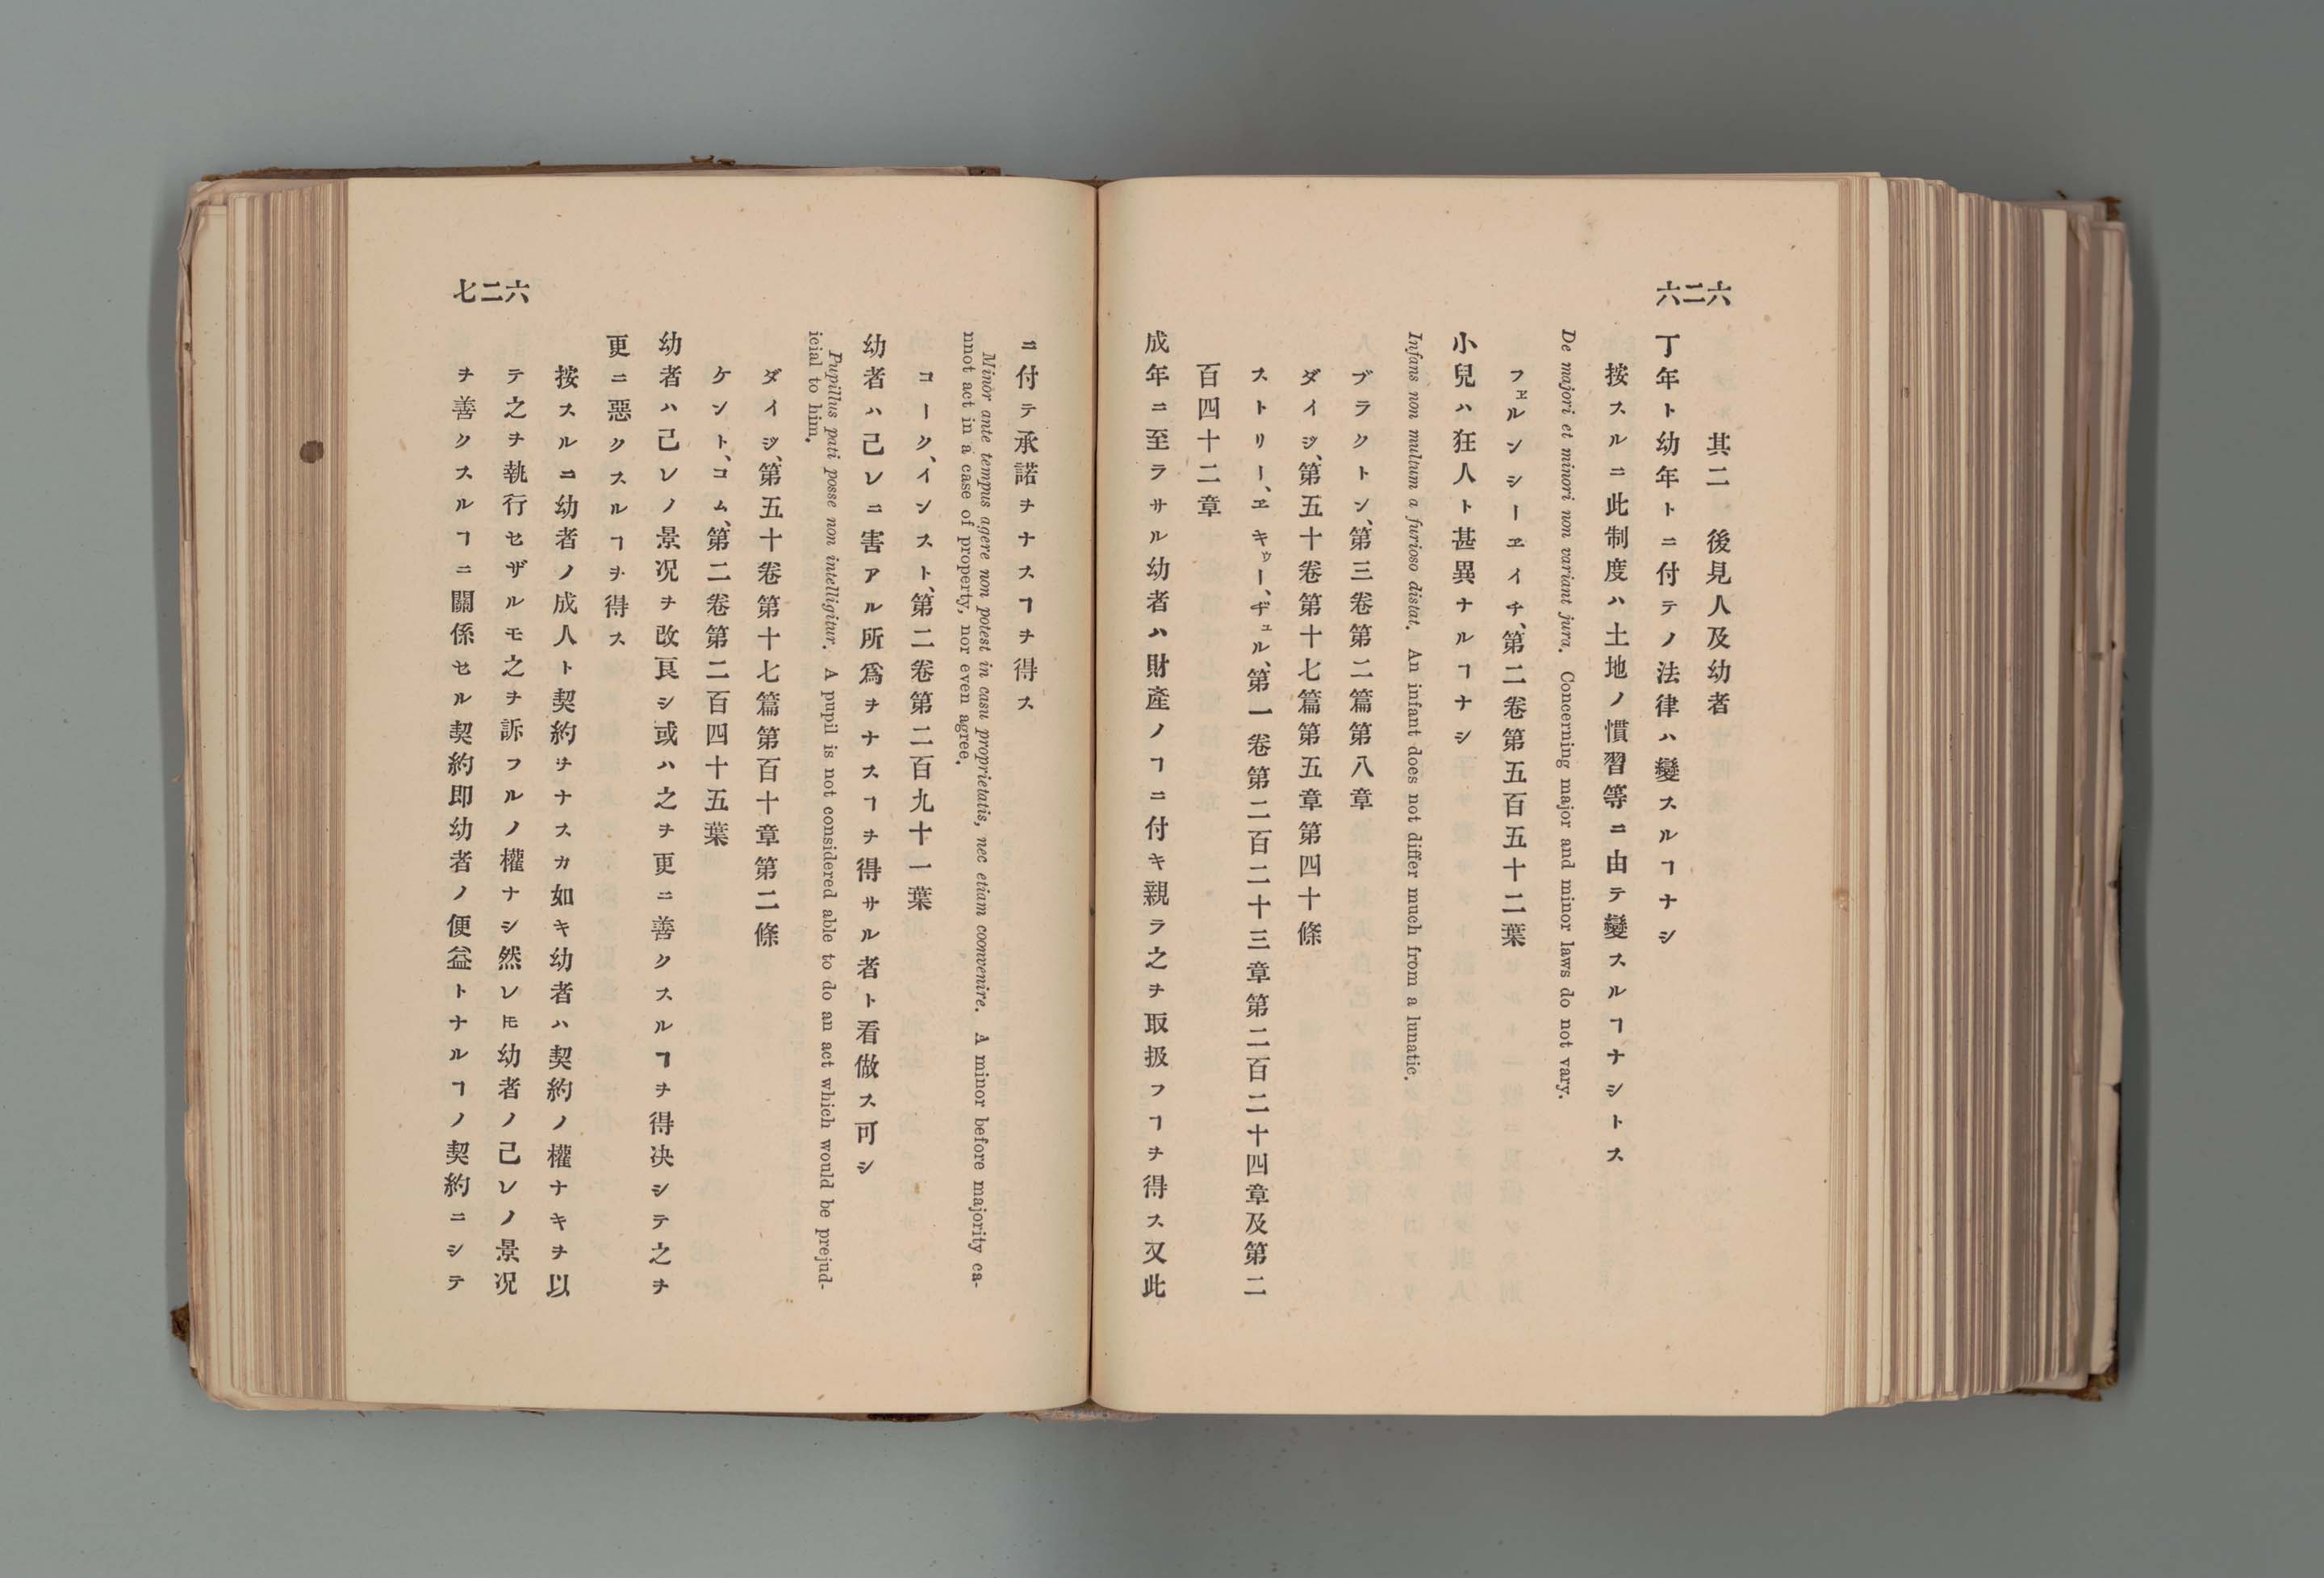 六二六
其二 後見人及幼者
丁年ト幼年トニ付テノ法律ハ變スルヿナシ
按スルニ此制度ハ土地ノ慣習等ニ由テ變スルヿナシトス
De majori et minori non variant jura. Concerning major and minor laws do not vary.
フェルンシーエイチ、第二卷第五百五十二葉
小兒ハ狂人ト甚異ナルヿナシ
Infans non multum a furioso distat. An infant does not differ much from a lunatic.
ブラクトン、第三卷第二篇第八章
ダイジ、第五十卷第十七篇第五章第四十條
ストリー、エキゥー、ヂュル、第一卷第二百二十三章第二百二十四章及第二
百四十二章
成年ニ至ラサル幼者ハ財產ノヿニ付キ親ラ之ヲ取扱フヿヲ得ス又此
六二七
ニ付テ承諾ヲナスヿヲ得ス
Minor ante tempus agere non potest in casu proprietatis, nec etiam coonvenire. A minor before majority ca-
nnot act in a case of property, nor even agree.
コーク、インスト、第二卷第二百九十一葉
幼者ハ己レニ害アル所爲ヲナスヿヲ得サル者ト看做ス可シ
Pupillus pati posse non intelligitur. A pupil is not considered able to do an act which would be prejud-
icial to him.
ダイジ、第五十卷第十七篇第百十章第二條
ケント、コム、第二卷第二百四十五葉
幼者ハ己レノ景况ヲ改良シ或ハ之ヲ更ニ善クスルヿヲ得决シテ之ヲ
更ニ惡クスルヿヲ得ス
按スルニ幼者ノ成人ト契約ヲナスカ如キ幼者ハ契約ノ權ナキヲ以
テ之ヲ執行セザルモ之ヲ訴フルノ權ナシ然レ𪜈幼者ノ己レノ景况
ヲ善クスルヿニ關係セル契約即幼者ノ便益トナルヿノ契約ニシテ